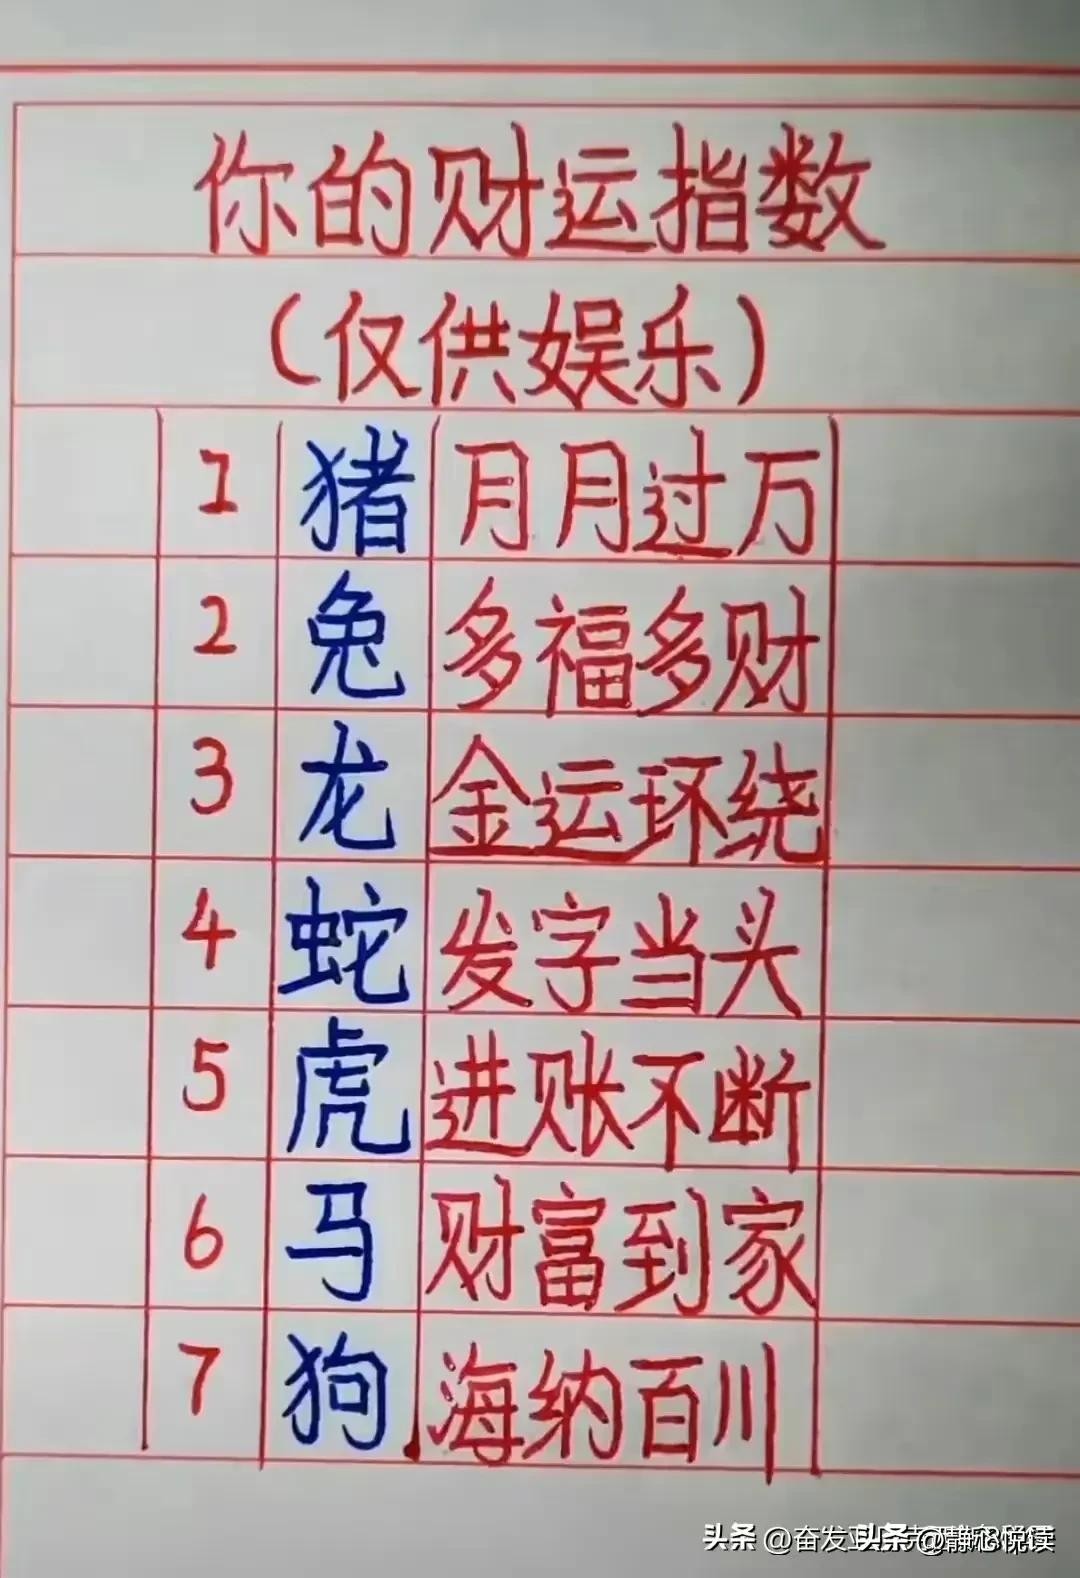 你的财运指数
(仅供娱乐)
1 猪 月月过万
2 兔 多福多财
3 龙 金运环绕
4 蛇 发字当头
5 虎 进账不断
6 马 财富到家
7 狗 海纳百川
头条 @奋发 头条 @静心悦读